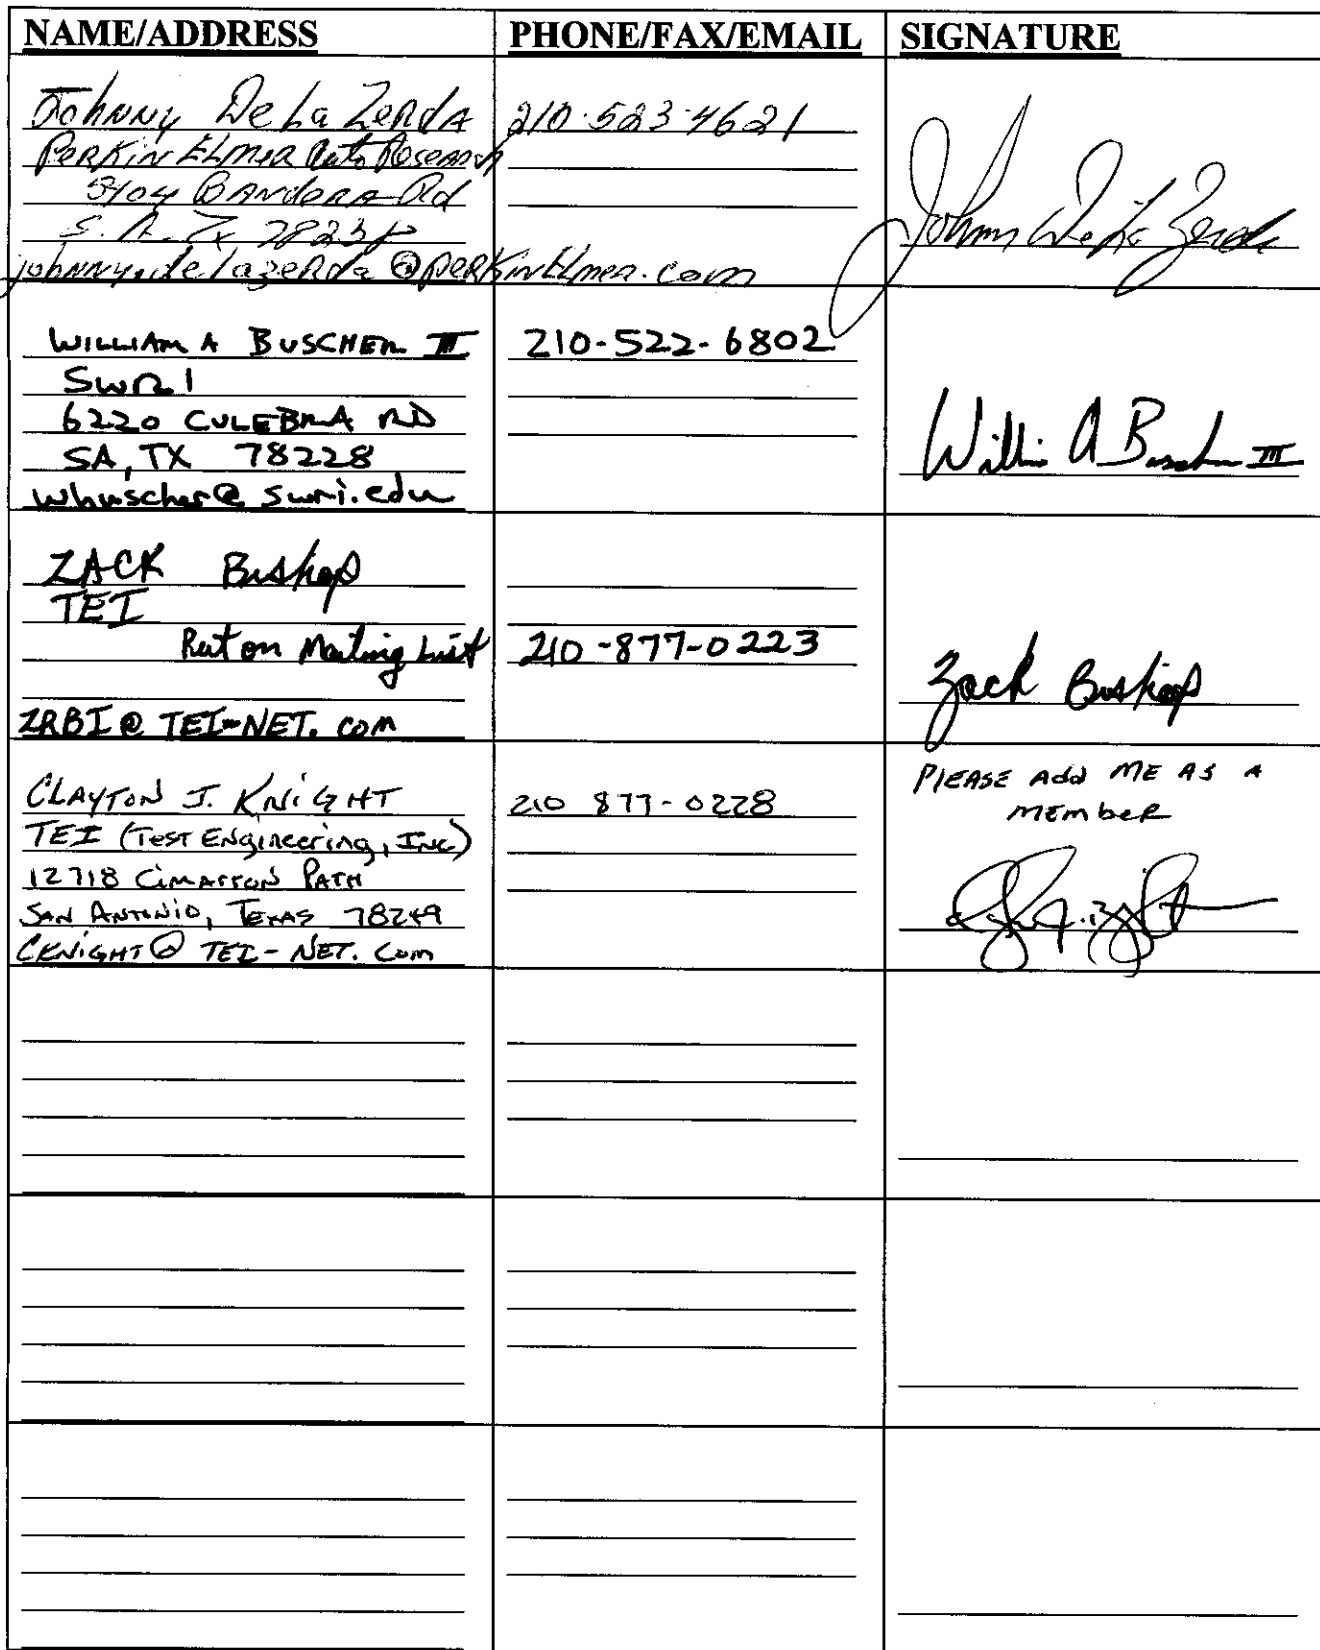 NAME/ADDRESS PHONE/FAX/EMAIL SIGNATURE
Johnny De La Zerda 210-523-4621
PerkinElmer Auto Research
5404 Bandera Rd
S.A. Tx 78238
johnny.delazerda@perkinElmer.com
Johnny De La Zerda
WILLIAM A BUSCHER III 210-522-6802
SwRI
6220 CULEBRA RD
SA, TX 78228
wbuscher@swri.edu
William A Buscher III
ZACK Bishop
TEI
Put on Mailing List 210-877-0223
ZRBI@TEI-NET.com
Zack Bishop
CLAYTON J. KNIGHT 210 877-0228
TEI (TEST ENgineering, INC)
12718 CIMARRON PATH
SAN ANTONIO, TEXAS 78249
CKNIGHT@TEI-NET.Com
PLEASE Add ME AS A
MEMbeR